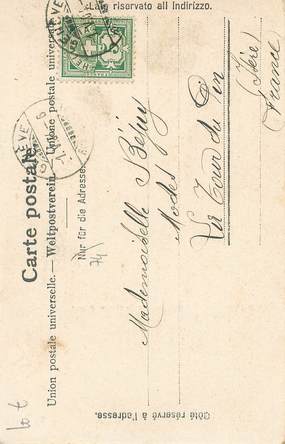 Carte postale.
Union postale universelle. — Weltpostverein. — Unione postale universale
Nur für die Adresse.
Lato riservato all Indirizzo.
Côté réservé à l'adresse.
GENÈVE
HELVETIA
5
Mademoiselle
Modes
La Tour du Pin
(Isère)
France
74